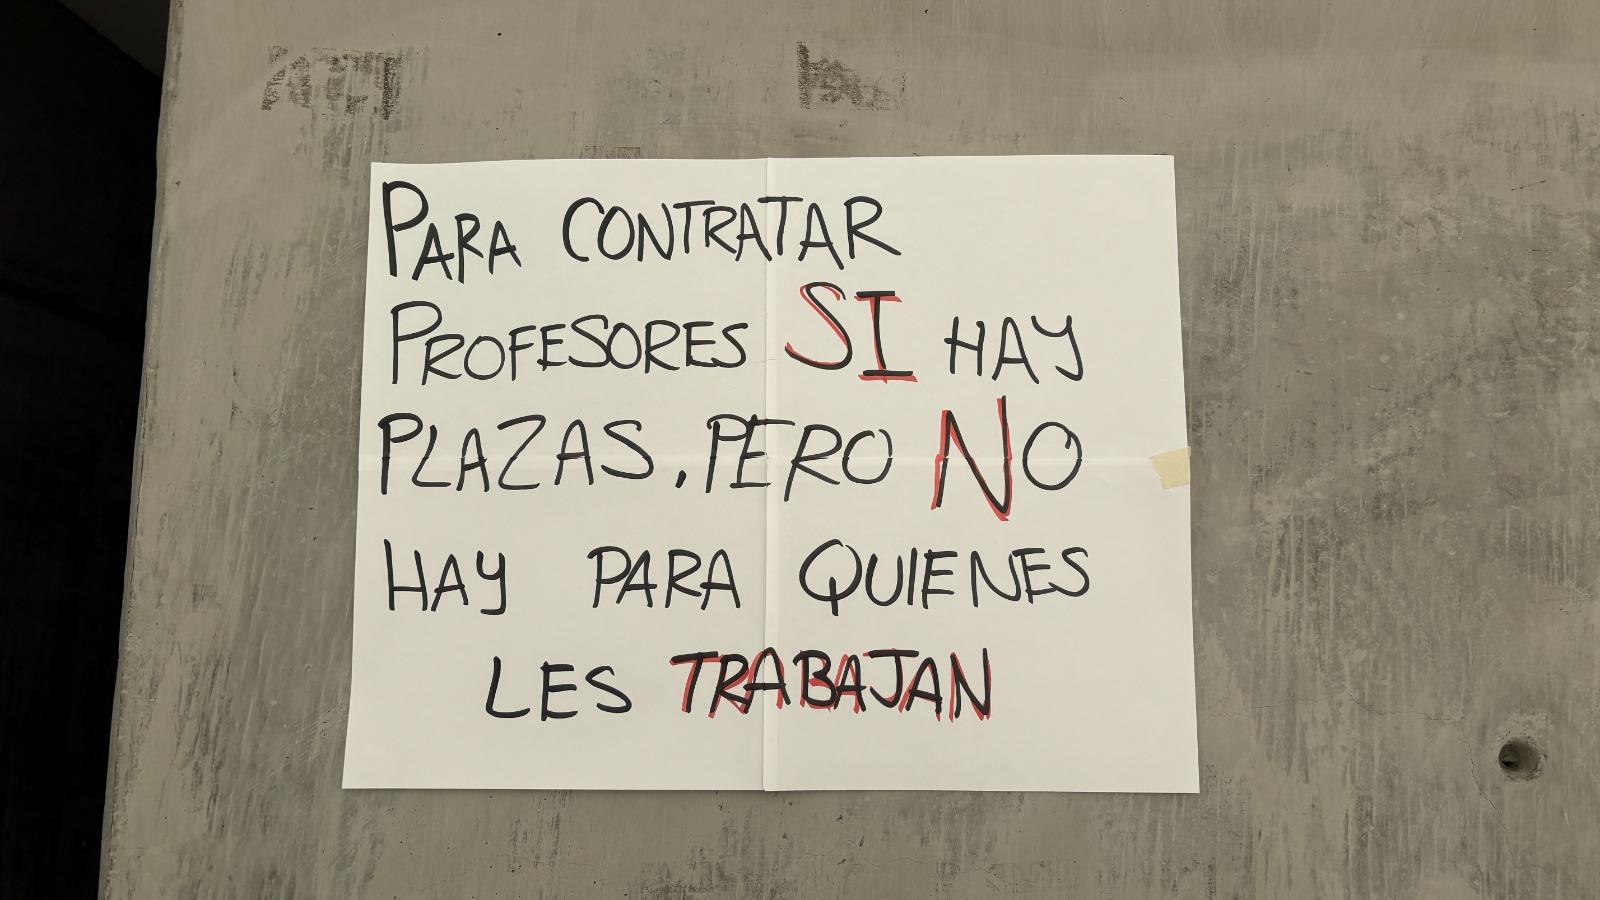 PARA CONTRATAR
PROFESORES SI HAY
PLAZAS, PERO NO
HAY PARA QUIENES
LES TRABAJAN